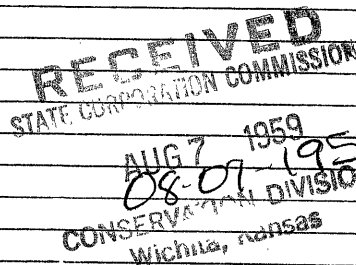 RECEIVED
STATE CORPORATION COMMISSION
AUG 7 1959
08-07-195
CONSERVATION DIVISIO
Wichita, Kansas